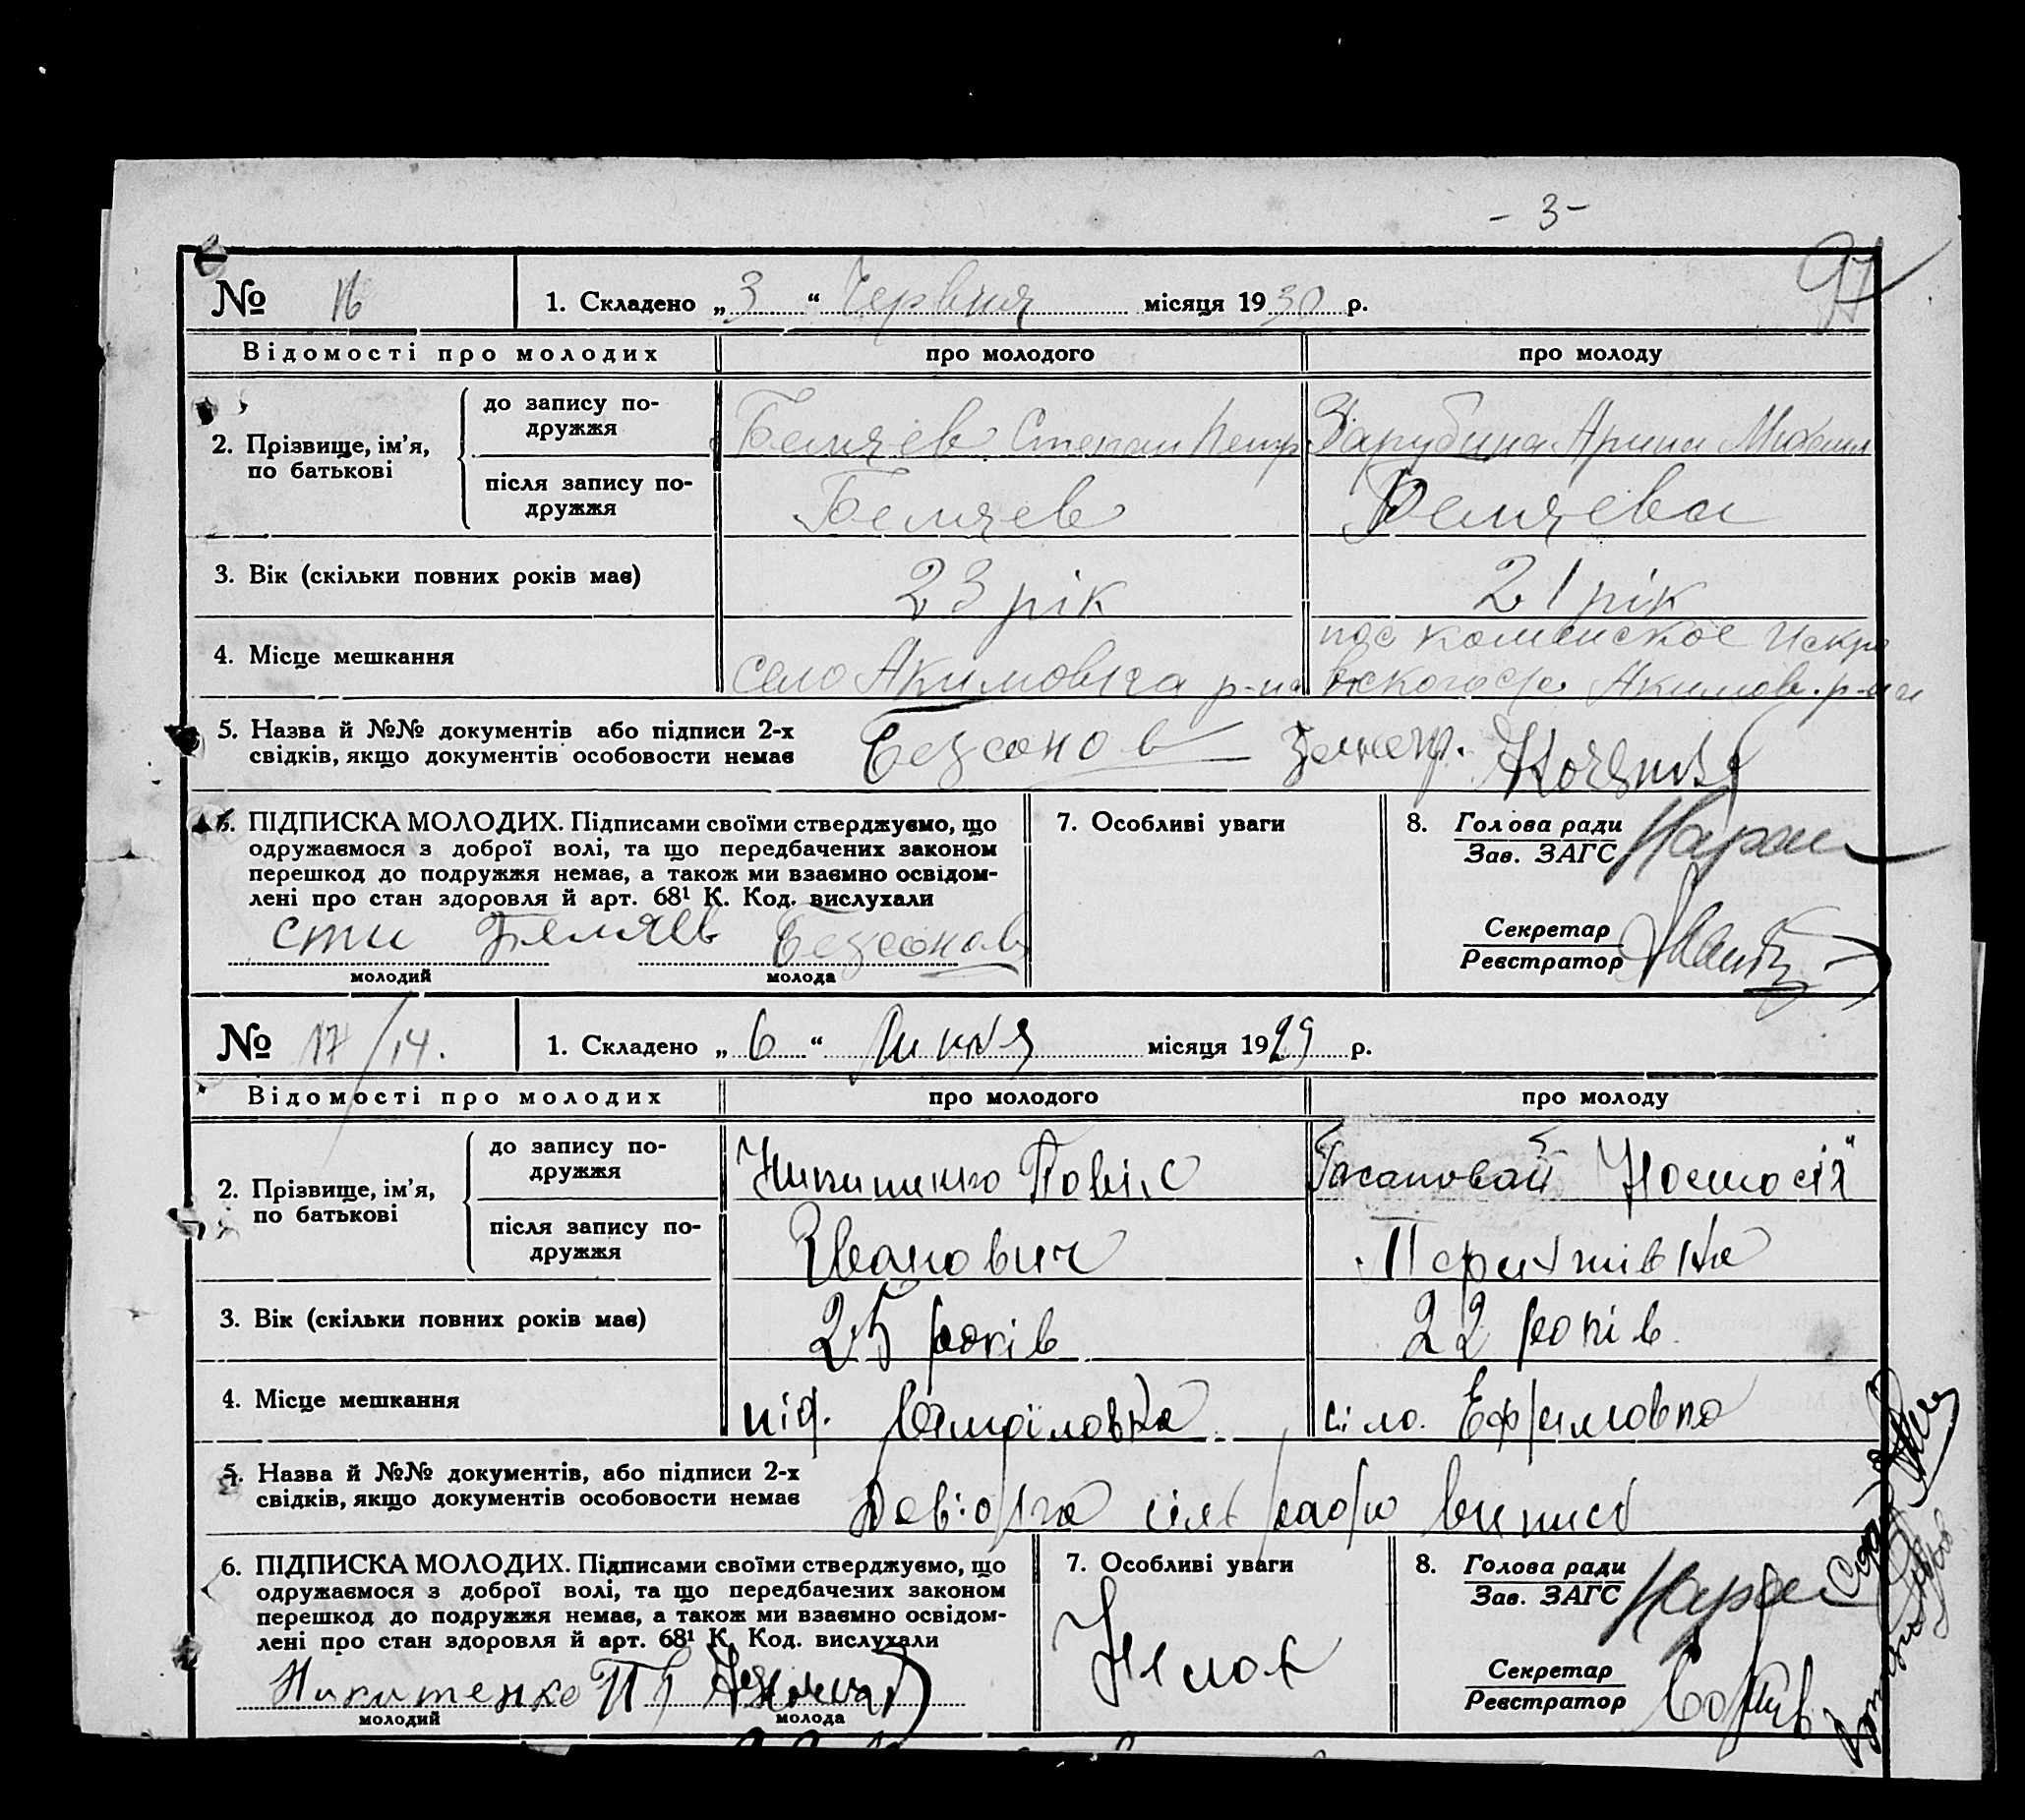 - 3 -
97
№ 16 1. Складено „ 3 “ Червня місяця 1930 р.
Відомості про молодих про молодого про молоду
2. Прізвище, ім’я, по батькові
до запису по-
дружжя
Беляев Степан Петр Зарубина Арина Михаил
після запису по-
дружжя
Беляев Беляева
3. Вік (скільки повних років має) 23 рік 21 рік
4. Місце мешкання
село Акимовка р-на
пос Каменское Искро
вского с/с Акимов. р-на
5. Назва й №№ документів або підписи 2-х
свідків, якщо документів особовости немає
Безсонов
6. ПІДПИСКА МОЛОДИХ. Підписами своїми стверджуємо, що
одружаємося з доброї волі, та що передбачених законом
перешкод до подружжя немає, а також ми взаємно освідом-
лені про стан здоровля й арт. 68¹ К. Код. вислухали
Беляев Безсонов
молодий молода
7. Особливі уваги
8. Голова ради
Зав. ЗАГС
Секретар
Реєстратор
№ 17/14. 1. Складено „ 6 “ Липня місяця 1929 р.
Відомості про молодих про молодого про молоду
2. Прізвище, ім’я,
по батькові
до запису по-
дружжя
Никитенко Павіл Настасія
після запису по-
дружжя
Іванович
3. Вік (скільки повних років має) 25 років 22 років
4. Місце мешкання
село Ефимовка
5. Назва й №№ документів, або підписи 2-х
свідків, якщо документів особовости немає
Довідка сільради виписі
6. ПІДПИСКА МОЛОДИХ. Підписами своїми стверджуємо, що
одружаємося з доброї волі, та що передбачених законом
перешкод до подружжя немає, а також ми взаємно освідом-
лені про стан здоровля й арт. 68¹ К. Код. вислухали
Никитенко
молодий молода
7. Особливі уваги
Немає
8. Голова ради
Зав. ЗАГС
Секретар
Реєстратор